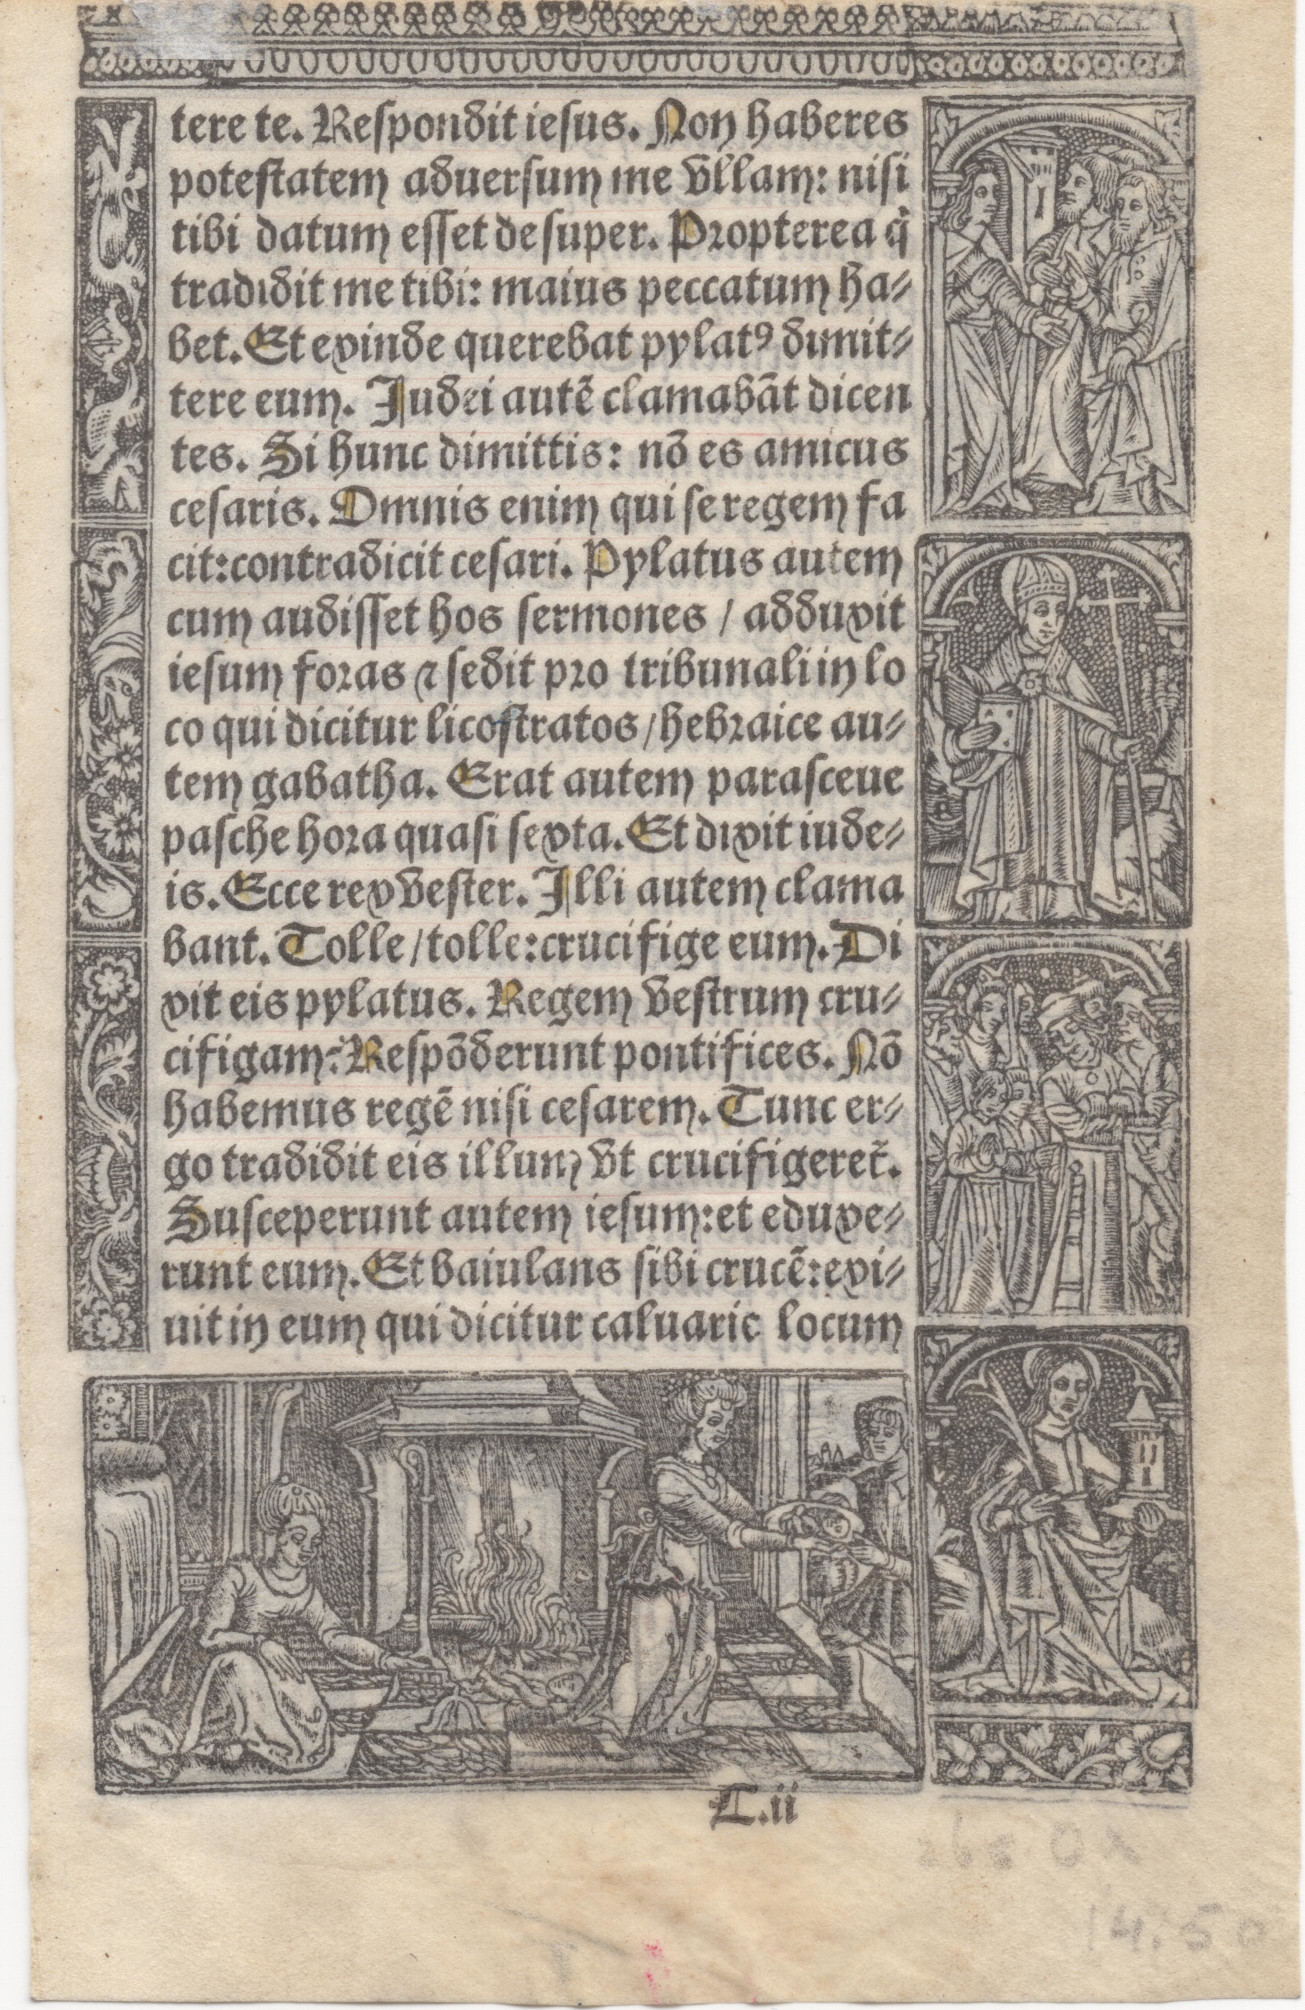 tere te. Respondit iesus. Non haberes
potestatem aduersum me vllam: nisi
tibi datum esset desuper. Propterea q̇
tradidit me tibi: maius peccatum ha⸗
bet. Et exinde querebat pylatꝰ dimit⸗
tere eum. Iudei autē clamabāt dicen
tes. Si hunc dimittis: nō es amicus
cesaris. Omnis enim qui se regem fa
cit: contradicit cesari. Pylatus autem
cum audisset hos sermones / adduxit
iesum foras ⁊ sedit pro tribunali in lo
co qui dicitur licostratos / hebraice au⸗
tem gabatha. Erat autem parasceue
pasche hora quasi sexta. Et dixit iude⸗
is. Ecce rex vester. Illi autem clama
bant. Tolle / tolle: crucifige eum. Di
xit eis pylatus. Regem vestrum cru⸗
cifigam: Respōderunt pontifices. Nō
habemus regē nisi cesarem. Tunc er⸗
go tradidit eis illum vt crucifigeret̄.
Susceperunt autem iesum: et eduxe⸗
runt eum. Et baiulans sibi crucē: exi⸗
uit in eum qui dicitur caluarie locum
C.ii
14.50